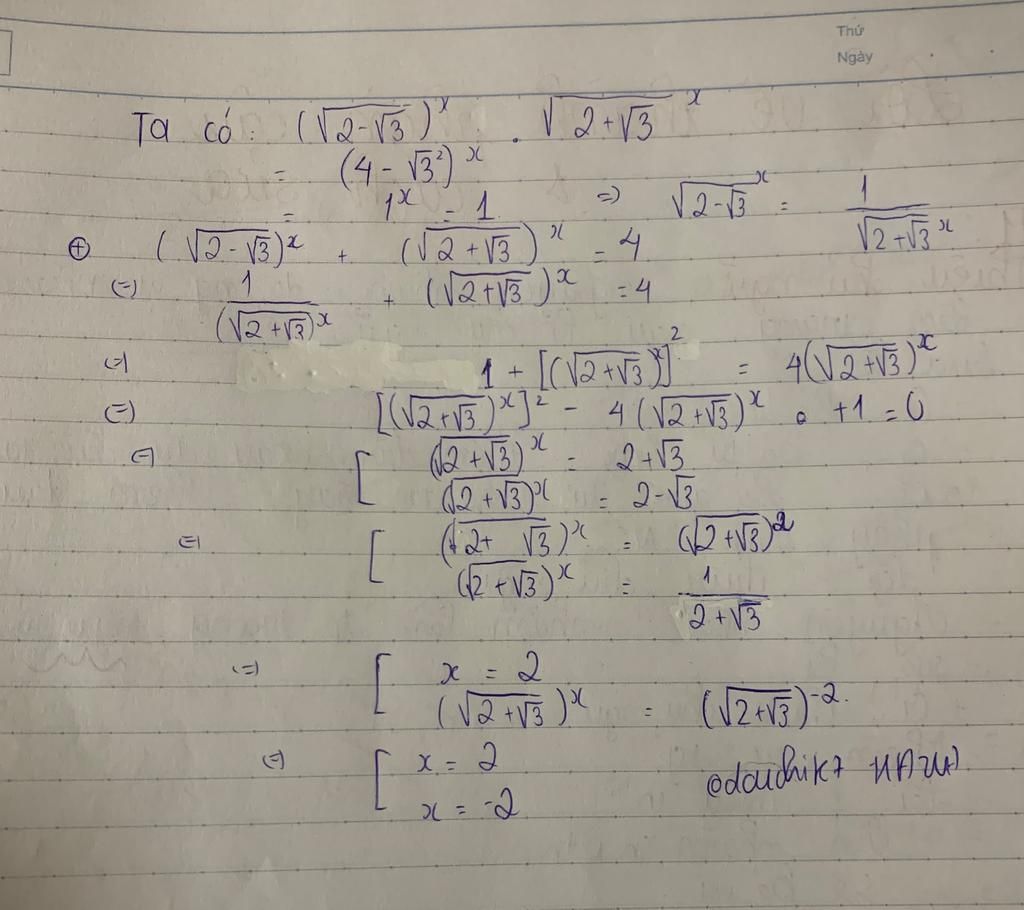 Thứ
Ngày
Ta có: (√(2-√3))^x . √(2+√3)^x
= (4 - √3²)^x
= 1^x = 1 => √(2-√3)^x = 1/√(2+√3)^x
⊕ (√(2-√3))^x + (√(2+√3))^x = 4
(=) 1/(√(2+√3))^x + (√(2+√3))^x = 4
(=) 1 + [(√(2+√3))^x]² = 4(√(2+√3))^x
(=) [(√(2+√3))^x]² - 4(√(2+√3))^x + 1 = 0
(=) [ (√(2+√3))^x = 2+√3
(√(2+√3))^x = 2-√3
(=) [ (√(2+√3))^x = (√(2+√3))²
(√(2+√3))^x = 1/(2+√3)
(=) [ x = 2
(√(2+√3))^x = (√(2+√3))^-2.
(=) [ x = 2
x = -2